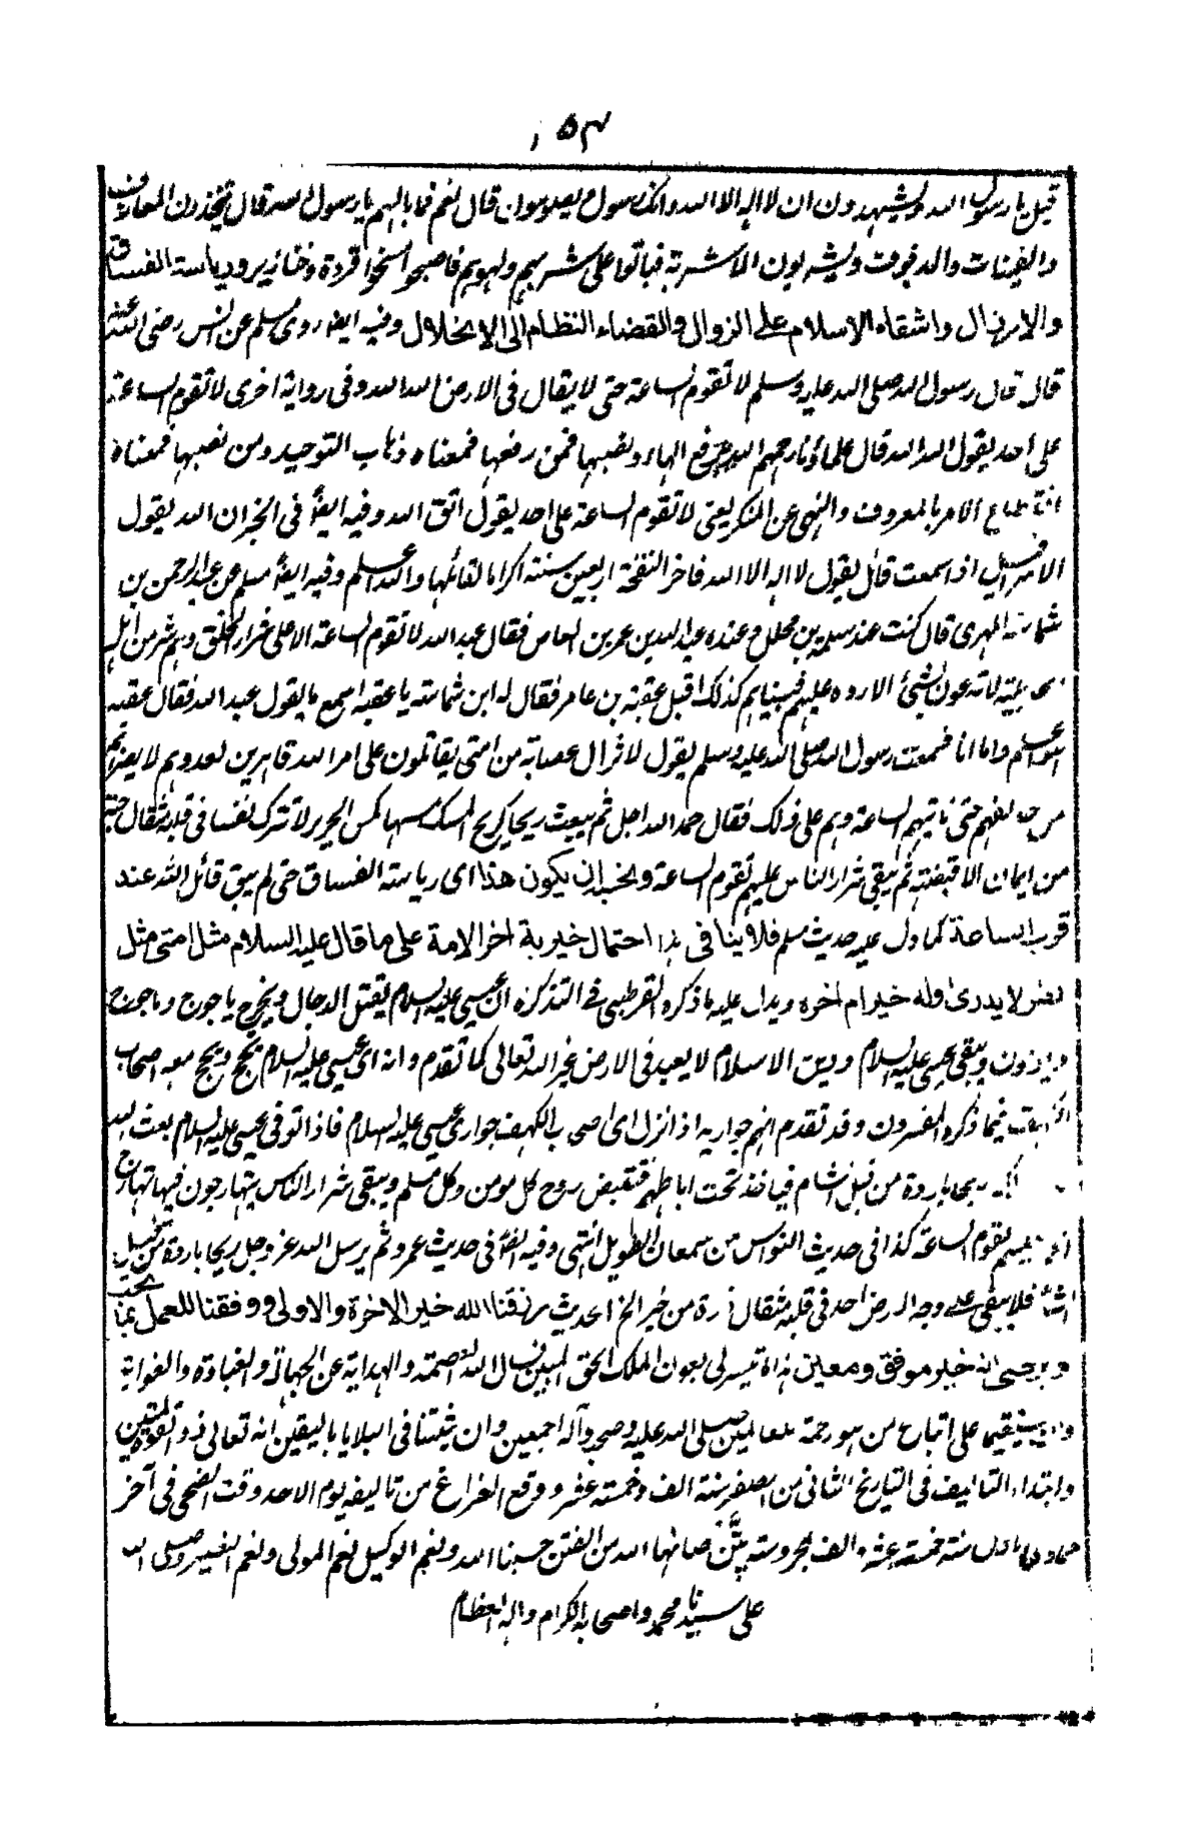 ١٥٣
قيل يا رسول الله ويشهدون ان لا اله الا الله وانك رسول ويصومون قال نعم فما بالهم يا رسول الله قال يتخذون المعازف
والقينات والدفوف ويشربون الاشربة فباتوا على شربهم ولهوهم فاصبحوا مسخوا قردة وخنازير ورياسة الفساق
والارذال واشفاء الاسلام على الزوال والقضاء النظام الى الانحلال وفيه ايضا روى مسلم عن انس رضى الله عنه
قال قال رسول الله صلى الله عليه وسلم لا تقوم الساعة حتى لا يقال فى الارض الله الله وفى رواية اخرى لا تقوم الساعة
على احد يقول الله الله قال علماؤنا رحمهم الله رفع الهاء ونصبها فمن رفعها فمعناه ذهاب التوحيد ومن نصبها فمعناه
انقطاع الامر بالمعروف والنهى عن المنكر يعنى لا تقوم الساعة على احد يقول اتق الله وفيه ايضا فى الخبر ان الله يقول
لاسرافيل اذا سمعت قائل يقول لا اله الا الله فاخر النفخة اربعين سنة اكراما لقائلها والله اعلم وفيه ايضا مسلم عن عبد الرحمن بن
شماسة المهرى قال كنت عند مسلمة بن مخلد وعنده عبد الله بن عمر بن العاص فقال عبد الله لا تقوم الساعة الا على شرار الخلق وهم شر من اهل
الجاهلية لا يدعون بشئ الا رده عليهم فبيناهم كذلك اقبل عقبة بن عامر فقال له ابن شماسة يا عقبه اسمع ما يقول عبد الله فقال عقبه
هو اعلم واما انا فسمعت رسول الله صلى الله عليه وسلم يقول لا تزال عصابة من امتى يقاتلون على امر الله قاهرين لعدوهم لا يضرهم
من خالفهم حتى تاتيهم الساعة وهم على ذلك فقال عبد الله اجل ثم يبعث ريحا كريح المسك مسها كمس الحرير لا تترك نفسا فى قلبه مثقال حبة
من ايمان الا قبضته ثم يبقى شرار الناس عليهم تقوم الساعة ويحتمل ان يكون هذا اى رياسة الفساق حتى لم يبق قائل الله عند
قرب الساعة كما دل عليه حديث مسلم فلا ينافى هذا احتمال خيرية اخر الامة على ما قال عليه السلام مثل امتى مثل
المطر لا يدرى اوله خير ام اخره ويدل عليه ما ذكره القرطبى فى التذكرة ان عيسى عليه السلام يقتل الدجال ويخرج ياجوج وماجوج
ويبقى عيسى عليه السلام ودين الاسلام لا يعبد فى الارض غير الله تعالى كما تقدم وانه اى عيسى عليه السلام يحج ويحج معه اصحاب
الكهف فيما ذكره المفسرون وقد تقدم انهم حواريه اذا نزل اى اصحاب الكهف حوارى عيسى عليه السلام فاذا توفى عيسى عليه السلام بعث الله
ريحا باردة من قبل الشام فياخذ تحت اباطهم فتقبض روح كل مومن وكل مسلم ويبقى شرار الناس يتهارجون فيها تهارج
الحمر فعليهم تقوم الساعة كذا فى حديث النواس من سمعان الطويل انتهى وفيه ايضا فى حديث عمرو ثم يرسل الله عز وجل ريحا باردة من قبل
الشام فلا يبقى على وجه الارض احد فى قلبه مثقال ذرة من خير الخ الحديث رزقنا الله خير الاخرة والاولى ووفقنا للعمل بما يحب
ويرضى انه خير موفق ومعين هذا ما تيسر لى بعون الملك الحق المبين نسال الله العصمة والهداية عن الجهالة والغباوة والغواية
وان يستقيمنا على اتباع من هو رحمة للعالمين صلى الله عليه وصحبه وآله اجمعين وان يثبتنا فى البلايا باليقين انه تعالى ذو القوة المتين
وابتداء التاليف فى التاريخ الثانى من الصفر سنة الف وخمسة عشر ووقع الفراغ من تاليفه يوم الاحد وقت الضحى فى آخر
جمادى الاول سنة خمسة عشر والف بمحروسة پتن صانها الله من الفتن حسبنا الله ونعم الوكيل نعم المولى ونعم النصير وصلى الله
على سيدنا محمد واصحابه الكرام واله العظام